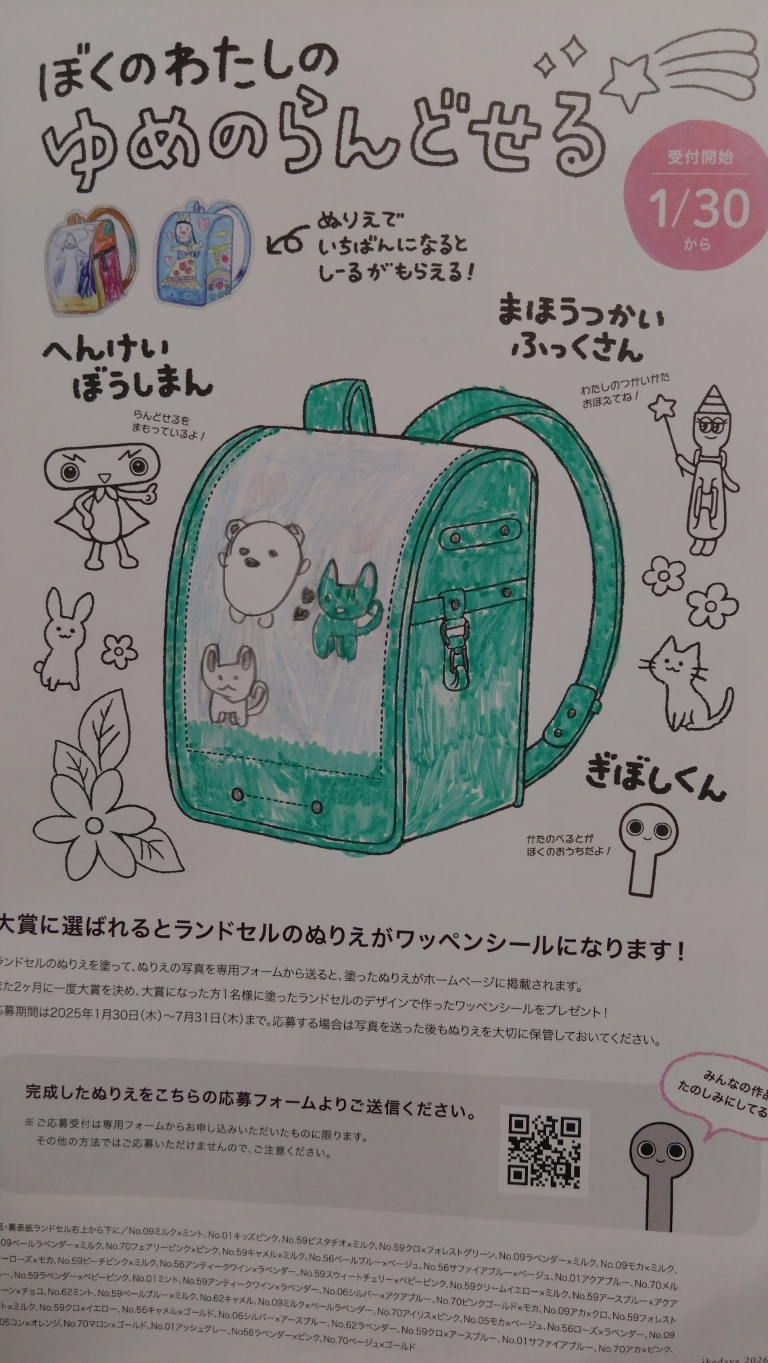 ぼくのわたしの
ゆめのらんどせる
受付開始
1/30
から
ぬりえで
いちばんになると
しーるがもらえる!
まほうつかい
ふっくさん
わたしのつかいかた
おぼえてね!
へんけい
ぼうしまん
らんどせるを
まもっているよ!
ぎぼしくん
かたのべるとが
ぼくのおうちだよ!
大賞に選ばれるとランドセルのぬりえがワッペンシールになります!
ランドセルのぬりえを塗って、ぬりえの写真を専用フォームから送ると、塗ったぬりえがホームページに掲載されます。
また2ヶ月に一度大賞を決め、大賞になった方1名様に塗ったランドセルのデザインで作ったワッペンシールをプレゼント!
応募期間は2025年1月30日(木)〜7月31日(木)まで。応募する場合は写真を送った後もぬりえを大切に保管しておいてください。
みんなの作品
たのしみにしてる
完成したぬりえをこちらの応募フォームよりご送信ください。
※ご応募受付は専用フォームからお申し込みいただいたものに限ります。
その他の方法ではご応募いただけませんので、ご注意ください。
・裏表紙ランドセル右上から下に/No.09ミルク×ミント、No.01キッズピンク、No.59ピスタチオ×ミルク、No.59クロ×フォレストグリーン、No.09ラベンダー×ミルク、No.09モカ×ミルク、
09ペールラベンダー×ミルク、No.70フェアリーピンク×ピンク、No.59キャメル×ミルク、No.56ペールブルー×ベージュ、No.56サファイアブルー×ベージュ、No.01アクアブルー、No.70メル
ーローズ×モカ、No.59ピーチピンク×ミルク、No.56アンティークワイン×ラベンダー、No.59スウィートチェリー×ベビーピンク、No.59クリームイエロー×ミルク、No.59アースブルー×アクア
ー、No.59ラベンダー×ベビーピンク、No.01ミント、No.59アンティークワイン×ラベンダー、No.06シルバー×アクアブルー、No.70ピンクゴールド×モカ、No.09アカ×クロ、No.59フォレスト
ーン×チョコ、No.62ミント、No.59ペールブルー×ミルク、No.62キャメル、No.09ミルク×ペールラベンダー、No.70アイリス×ピンク、No.05モカ×ベージュ、No.56ローズ×ラベンダー、No.09
ト×ミルク、No.59クロ×イエロー、No.56キャメル×ゴールド、No.06シルバー×アースブルー、No.62ラベンダー、No.59クロ×アースブルー、No.01サファイアブルー、No.70アカ×ピンク、
05コン×オレンジ、No.70マロン×ゴールド、No.01アッシュグレー、No56ラベンダー×ピンク、No.70ベージュ×ゴールド
ikedaya 2026